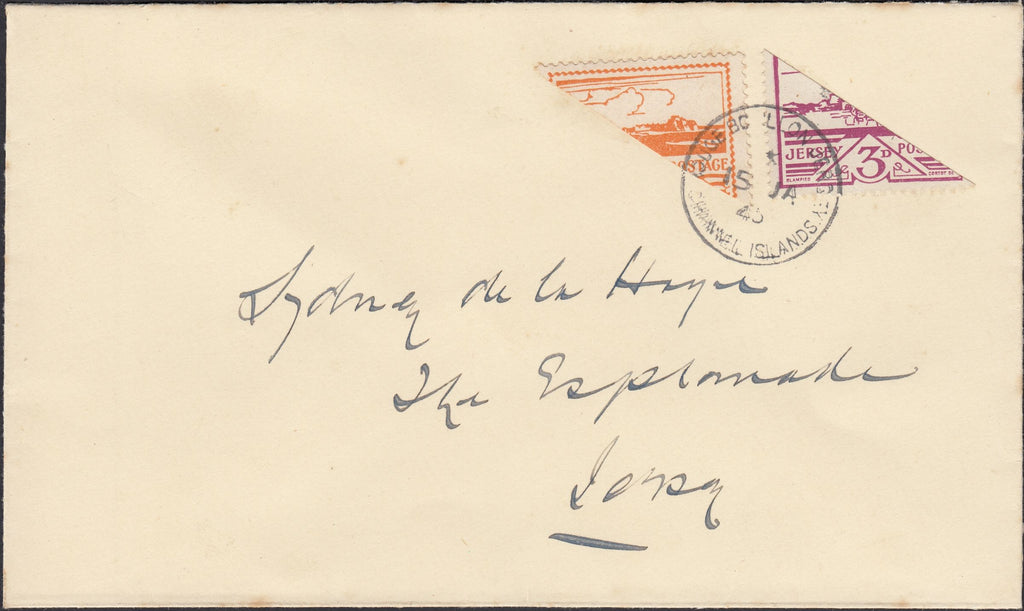 POSTAGE
JERSEY POS
3D
BLAMPIED
ROUGE BOUILLON JERSEY
15 JA
45
CHANNEL ISLANDS
Sydney de la Haye
The Esplanade
Jersey